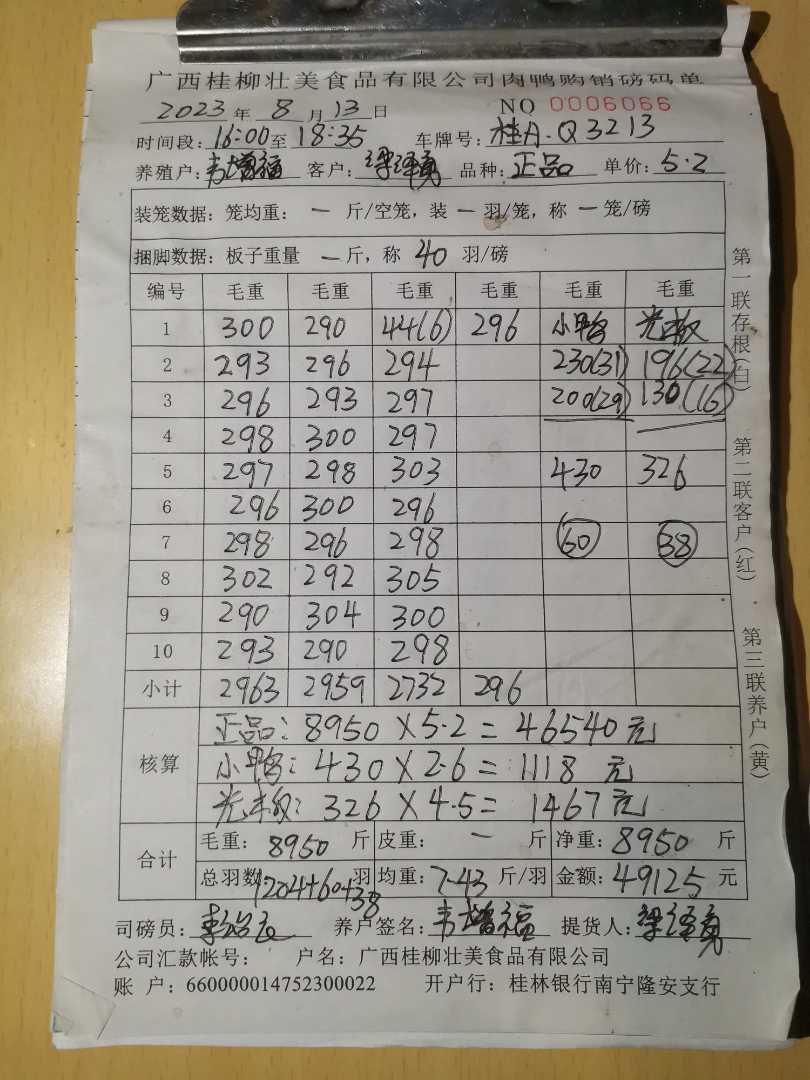 广西桂柳壮美食品有限公司肉鸭购销磅码单
2023 年 8 月 13 日 NO 0006066
时间段: 16:00 至 18:35 车牌号: 桂A·Q3213
养殖户: 韦增福 客户: 梁泽勇 品种: 正品 单价: 5.2
装笼数据: 笼均重: 一 斤/空笼, 装 一 羽/笼, 称 一 笼/磅
捆脚数据: 板子重量 一 斤, 称 40 羽/磅
编号 毛重 毛重 毛重 毛重 毛重 毛重
1 300 290 44(6) 296 小鸭
2 293 296 294 230(31) 196(22)
3 296 293 297 200(29) 130(16)
4 298 300 297
5 297 298 303 430 326
6 296 300 296
7 298 296 298 60 38
8 302 292 305
9 290 304 300
10 293 290 298
小计 2963 2959 2732 296
核算
正品: 8950 X 5.2 = 46540 元
小鸭: 430 X 2.6 = 1118 元
326 X 4.5 = 1467 元
合计
毛重: 8950 斤 皮重: 一 斤 净重: 8950 斤
总羽数: 1204+60+38 羽 均重: 7.43 斤/羽 金额: 49125 元
司磅员: 养户签名: 韦增福 提货人: 梁泽勇
公司汇款帐号: 户名: 广西桂柳壮美食品有限公司
账 户: 660000014752300022 开户行: 桂林银行南宁隆安支行
第一联存根(白) 第二联客户(红) 第三联养户(黄)